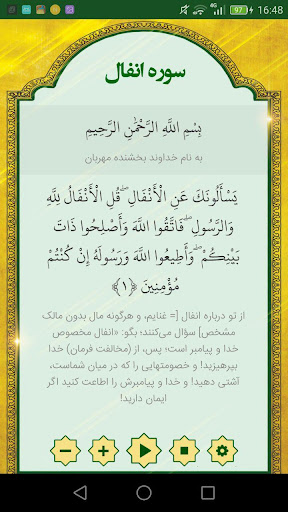 4G 97 16:48
سوره انفال
بِسْمِ اللَّهِ الرَّحْمَٰنِ الرَّحِيمِ
به نام خداوند بخشنده مهربان
يَسْأَلُونَكَ عَنِ الْأَنْفَالِ ۖ قُلِ الْأَنْفَالُ لِلَّهِ
وَالرَّسُولِ ۖ فَاتَّقُوا اللَّهَ وَأَصْلِحُوا ذَاتَ
بَيْنِكُمْ ۖ وَأَطِيعُوا اللَّهَ وَرَسُولَهُ إِنْ كُنْتُمْ
مُؤْمِنِينَ ﴿۱﴾
از تو درباره انفال [= غنایم، و هرگونه مال بدون مالک
مشخص] سؤال می‌کنند؛ بگو: «انفال مخصوص
خدا و پیامبر است؛ پس، از (مخالفت فرمان) خدا
بپرهیزید! و خصومتهایی را که در میان شماست،
آشتی دهید! و خدا و پیامبرش را اطاعت کنید اگر
ایمان دارید!